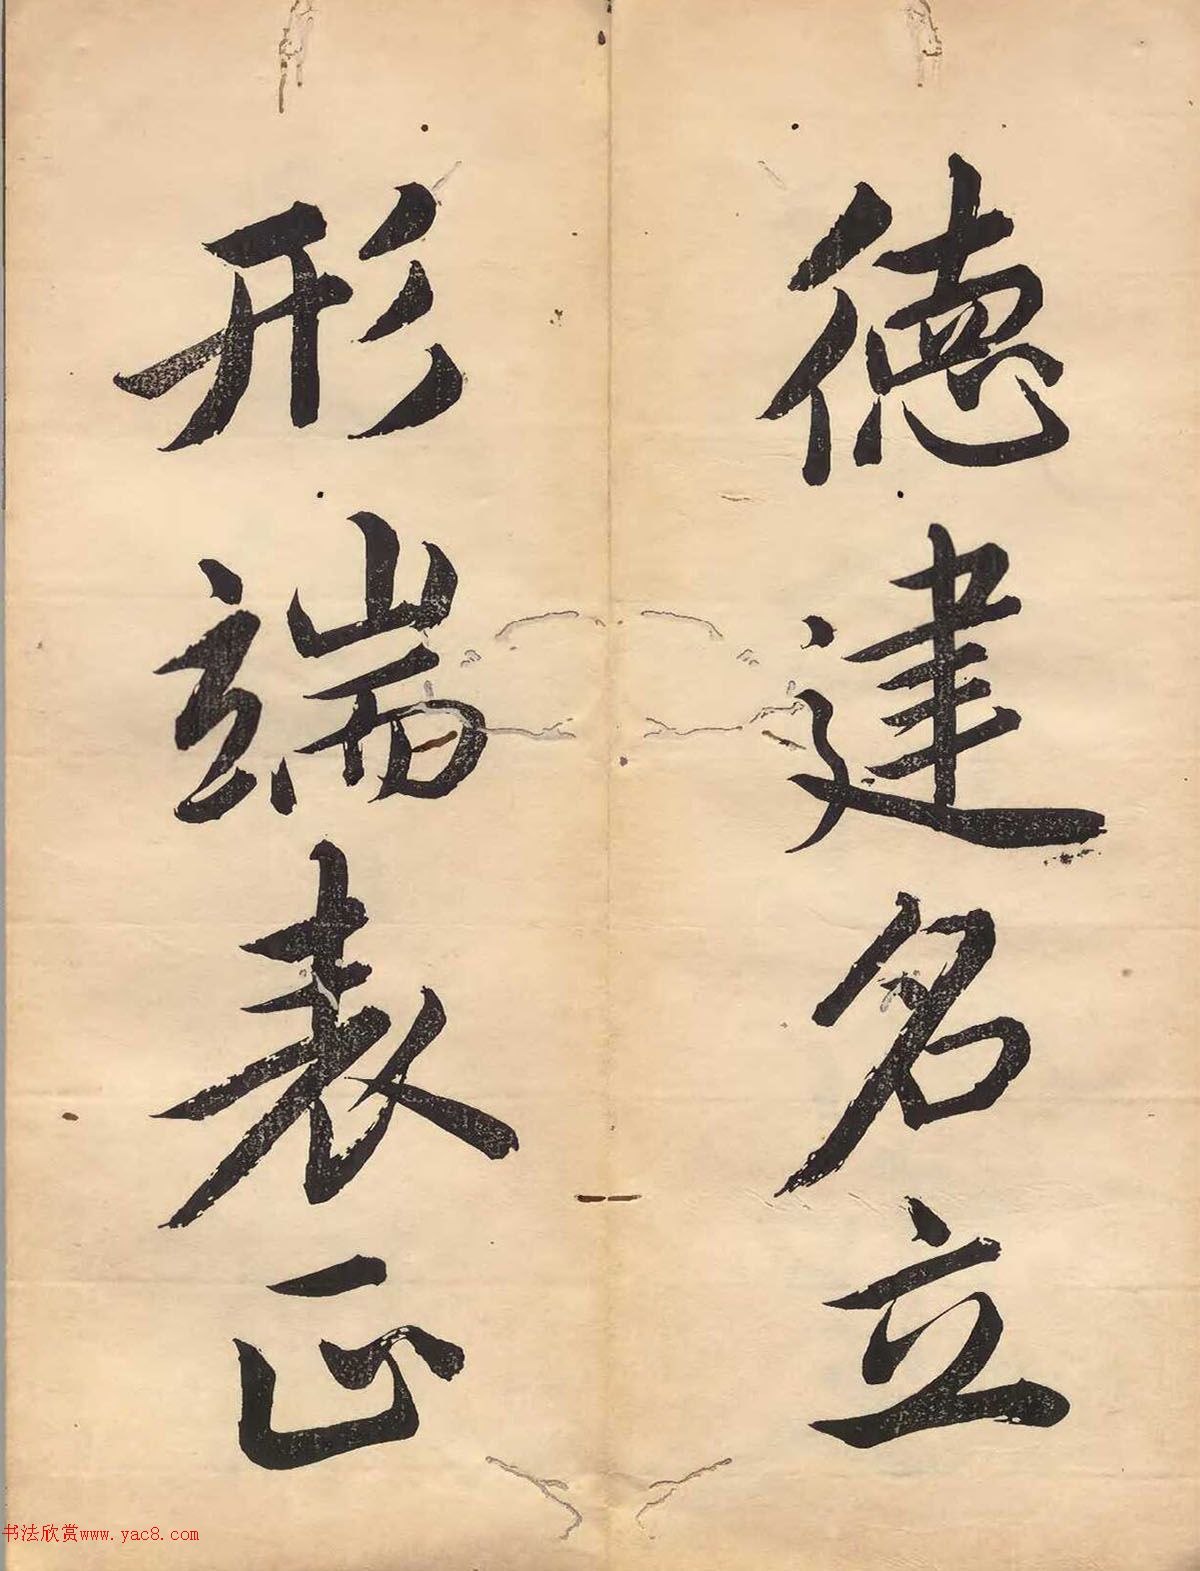 德建名立
形端表正
书法欣赏www.yac8.com